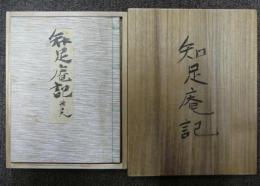 知足庵記
知足庵記